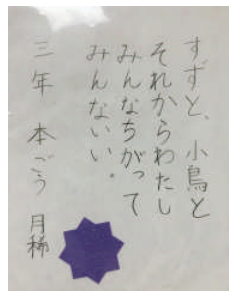 すずと、小鳥と
それからわたし
みんなちがって
みんないい。
三年 本ごう 月稀